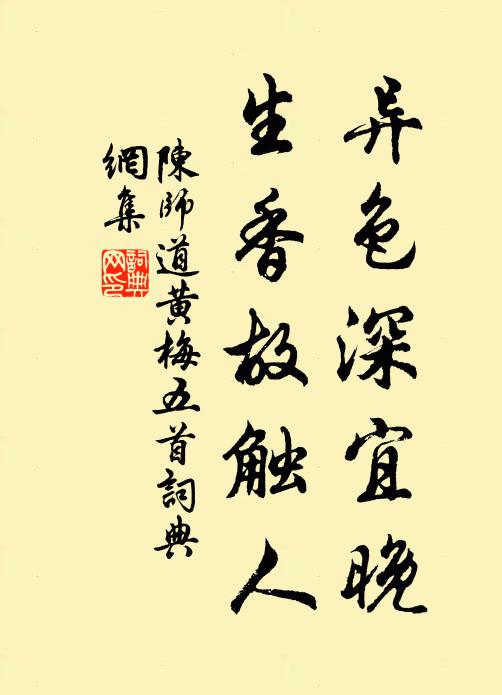 异色深宜晚
生香故触人
陳師道黄梅五首詞典
網集
詞典
网印